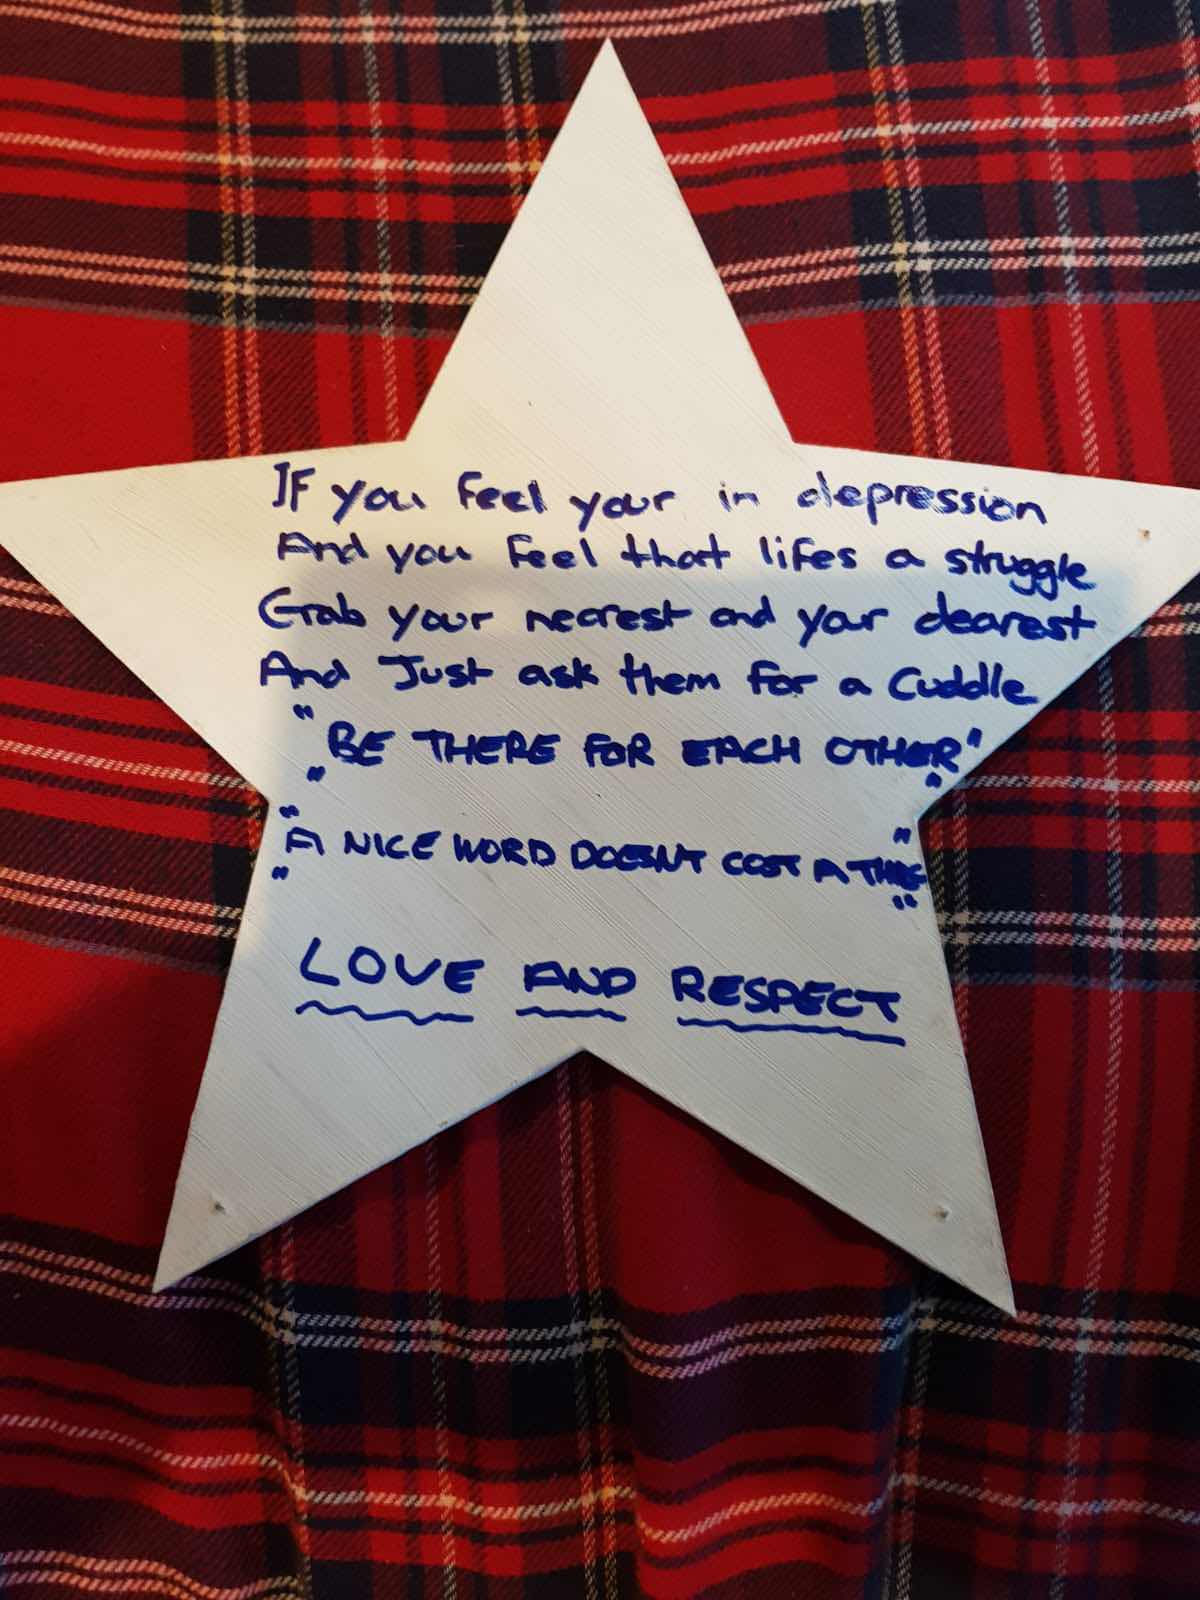 IF you feel your in depression
And you feel that lifes a struggle
Grab your nearest and your dearest
And Just ask them for a Cuddle
"BE THERE FOR EACH OTHER"
"A NICE WORD DOESNT COST A THING"
LOVE AND RESPECT